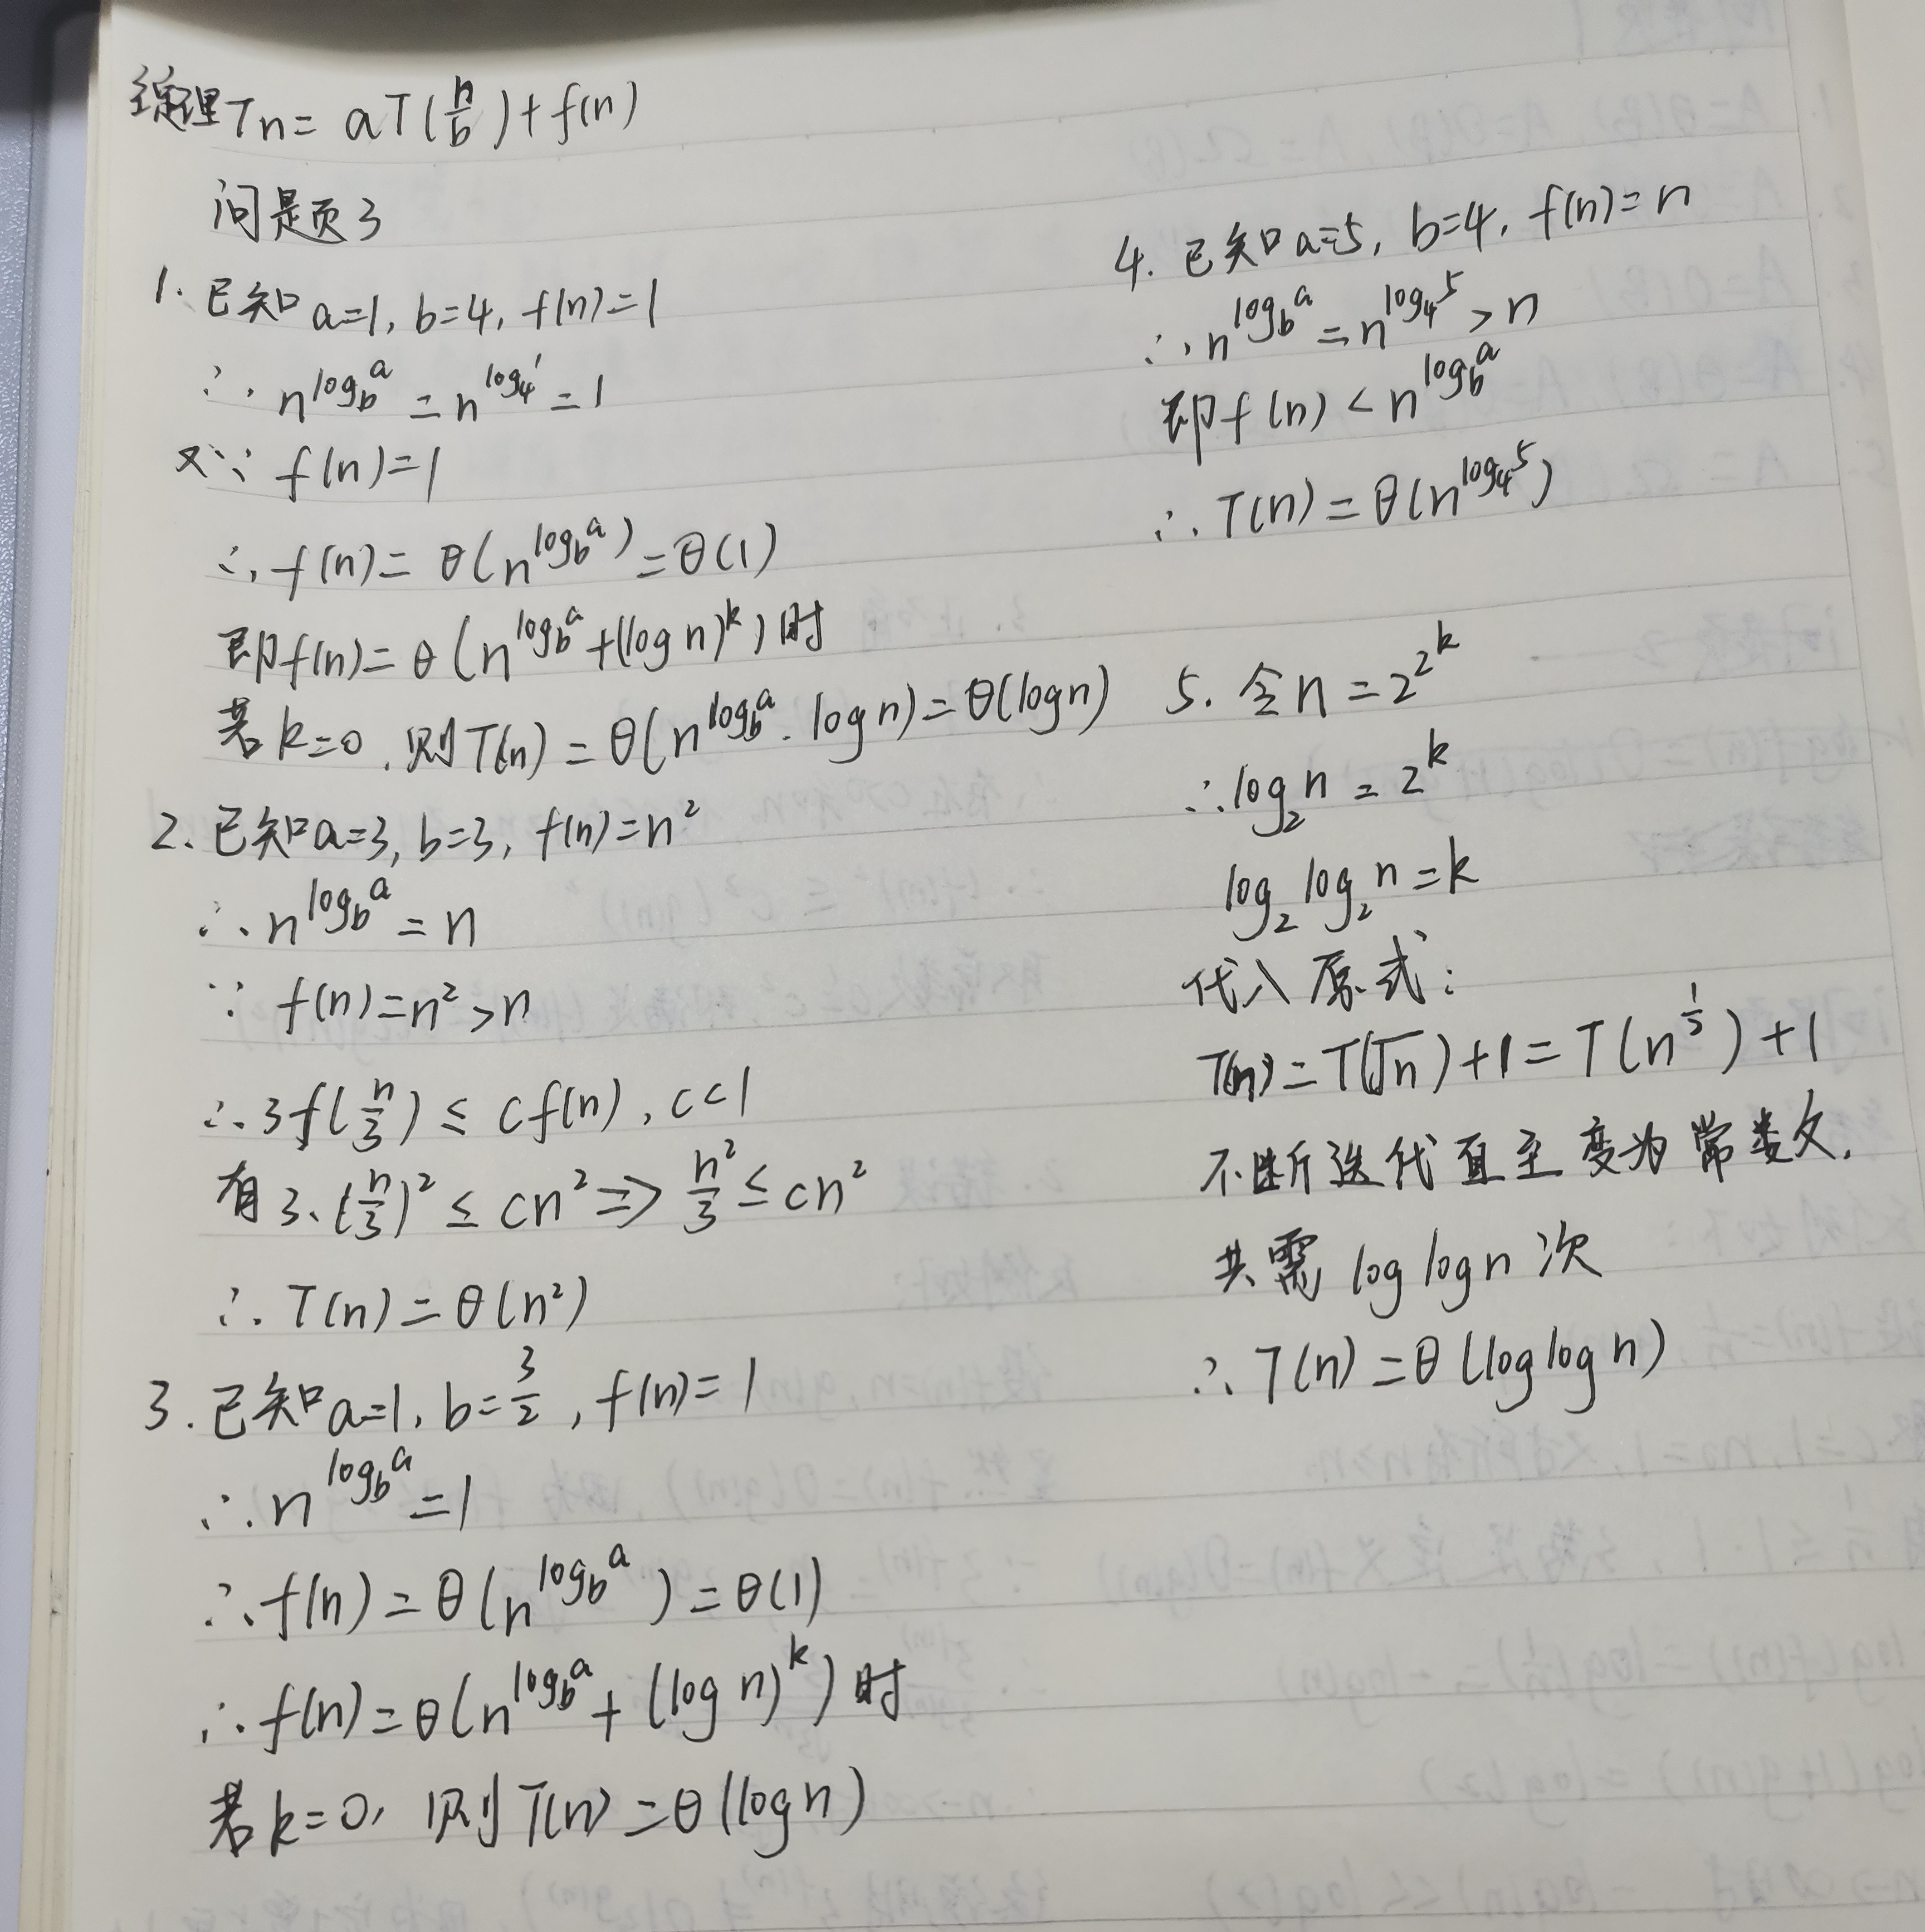 定理 Tn = aT(n/b) + f(n)
问题3
1. 已知 a=1, b=4, f(n)=1
∴ n^{log_b a} = n^{log_4 1} = 1
又∵ f(n)=1
∴ f(n) = θ(n^{log_b a}) = θ(1)
即f(n) = θ(n^{log_b a} + (log n)^k) 时
若k=0, 则T(n) = θ(n^{log_b a} · log n) = θ(log n)
2. 已知a=3, b=3, f(n)=n²
∴ n^{log_b a} = n
∵ f(n)=n²>n
∴ 3f(n/3) ≤ cf(n), c<1
有 3·(n/3)² ≤ cn² => n²/3 ≤ cn²
∴ T(n) = θ(n²)
3. 已知a=1, b=3/2, f(n)=1
∴ n^{log_b a} = 1
∴ f(n) = θ(n^{log_b a}) = θ(1)
∴ f(n) = θ(n^{log_b a} + (log n)^k) 时
若k=0, 则T(n) = θ(log n)
4. 已知a=5, b=4, f(n)=n
∴ n^{log_b a} = n^{log_4 5} > n
即f(n) < n^{log_b a}
∴ T(n) = θ(n^{log_4 5})
5. 令n = 2^{2^k}
∴ log_2 n = 2^k
log_2 log_2 n = k
代入原式:
T(n) = T(√n) + 1 = T(n^{1/2}) + 1
不断迭代直至变为常数.
共需 log log n 次
∴ T(n) = θ(log log n)